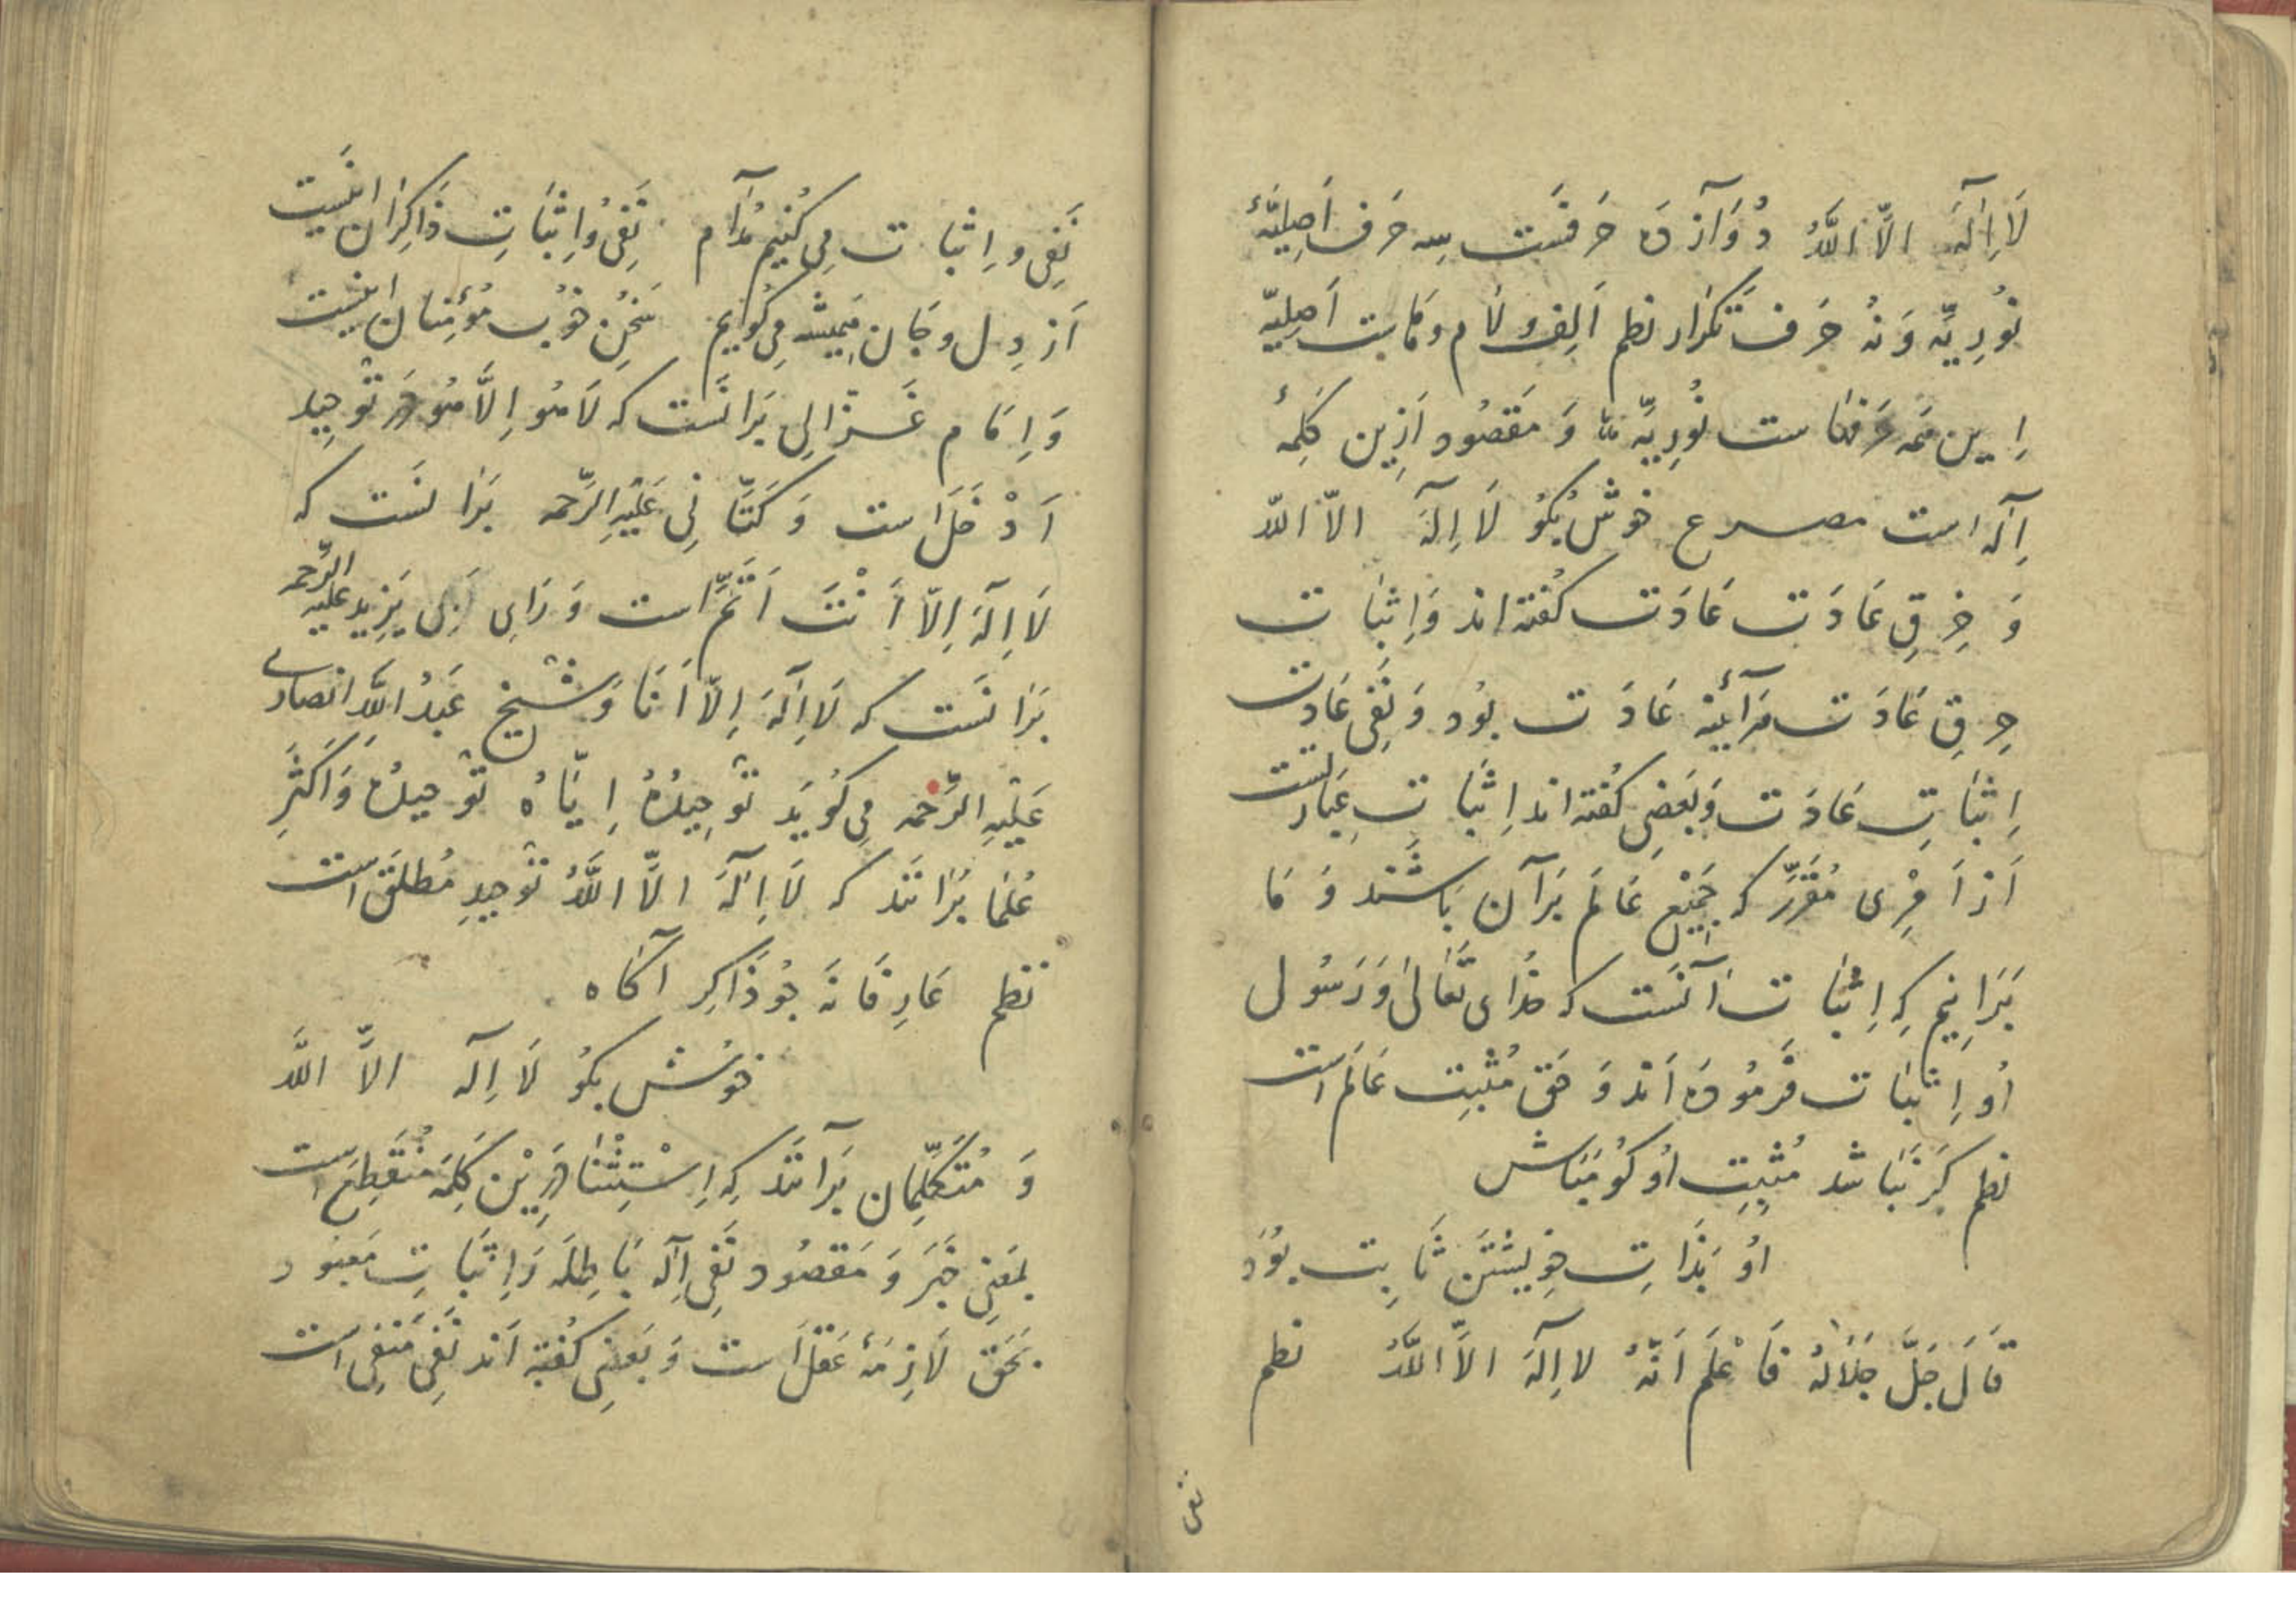 لَا اِلٰهَ الَّا اللَّهُ دُوَآزدَه حَرفَست سِه حَرف اَصِلیَّهٔ
نُورِیَّه وَ نُه حَرف تَکرَار نظم اَلِف و لَام و هَاست اَصِلِیّه
اِین هَمَه حَرفهَاست نُورِیَّه وَ مَقصُود اَزِین کَلِمهٔ
اِلٰه است مصرع خوش بکُو لَا اِلٰهَ الّا اللّه
وَ خِرقِ عَادَت عَادَت کُفته‌اند وَ اِثبَات
خِرقِ عَادَت هَرآئینه عَادَت بوُد وَ نَفیِ عَادَت
اِثبَاتِ عَادَت وَ بَعَضِی کُفته‌اند اِثبَات عِبَارتست
اَز اَمرِی مُقَرَّر که جَمِیعِ عَالَم بَرآن بَاشَند وَ مَا
بَرَانِیم کِه اِثبَات آنَست که خُدَای تَعَالیٰ وَ رَسُول
اُو اِثبَات فَرمُودَه اَند وَ حَق مُثبِت عَالَم است
نظم کَر نَبَاشَد مُثبِت اُو کُو مَبَاش
اُو بَذَاتِ خِویشتَن ثَابِت بوَُد
قَالَ جَلَّ جَلَالُهُ فَاعْلَم اَنَّهُ لا اِلٰهَ الَّا اللَّهُ نظم
نفی
نَفِی و اِثبَات مِی کُنِیم مُدَآم نَفِی وُ اِثبَاتِ ذَاکِرَان اینَست
اَز دِل و جَان هَمِیشه مِی کُوایم سَخُنِ خوُب مُؤمِنَان اینَست
وَ اِمَام غَزّالِی بَرانَست که لَا هُو اِلَّا هُو دَر تَوحِید
اَدْخَل است وَ کَتَّانِی عَلَیهِ الرَّحمه بَرانَست که
لَا اِلَهَ اِلّا اَنْتَ اَتَمَّ است وَ رَایِ بَی یَزِید عَلَیه الرَّحمه
بَرَانَست که لَا اِلٰهَ اِلّا اَنَا وَ شیخ عَبدُ اللَّهِ انصاری
عَلَیهِ الرَّحمه مِی کُویَد تَوحِیدُهُ اِیَّاهُ تَوحیدُهُ وَ اَکثَرِ
عُلَمَا بَرَانَند که لَا اِلٰهَ الَّا اللَّهُ تَوحِیدِ مُطلَق است
نظم عَارِفَانَه چو ذَاکِر آکَاه
خوُش بکُو لَا اِلٰه الَّا اللَّه
وَ مُتَکَلِّمَان بَرَآنَند کِه اِسْتِثْنَا دَرین کَلِمَه مُنقَطِعَ است
بمَعنِی غَیر وَ مَقصُود نَفِی اِلٰه بَاطِلَه وَ اِثبَاتِ مَعبُود
بحَق لَازِمَهٔ عَقل است وَ بَعضِی کُفته اَند نَفِی مَنفِی است